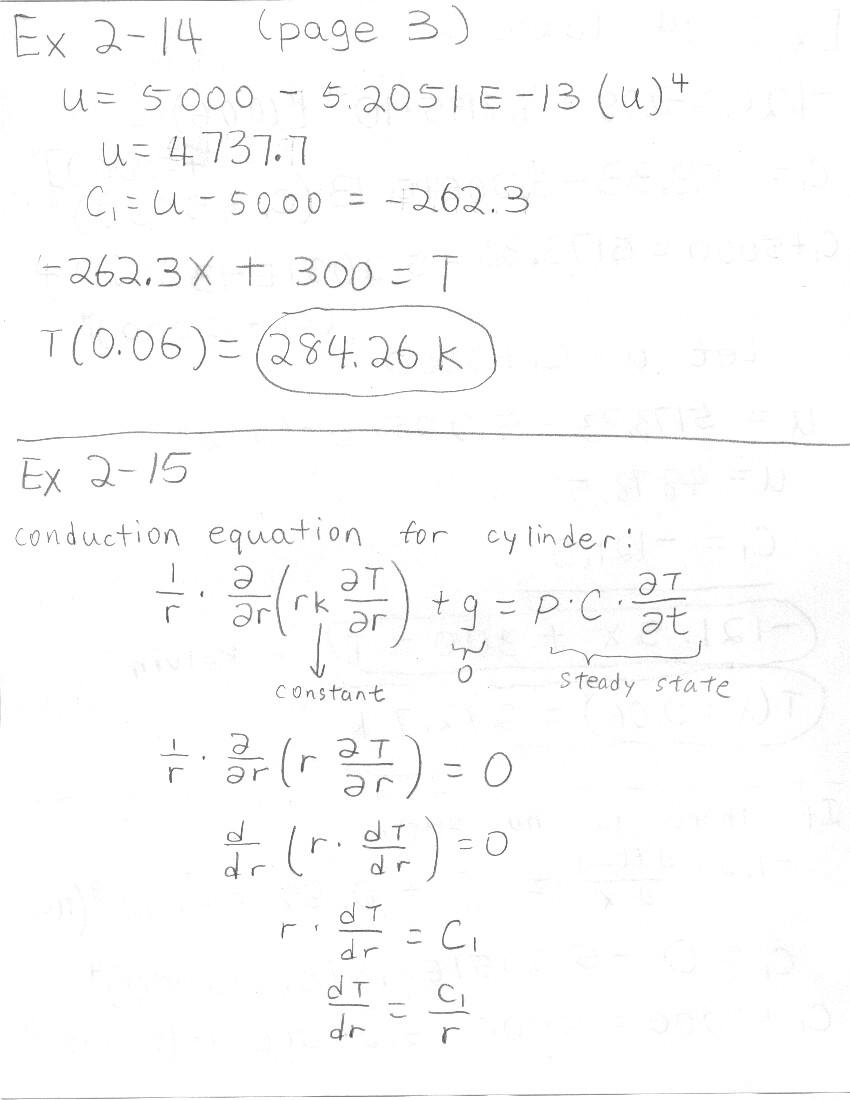 Ex 2-14 (page 3)
u = 5000 - 5.2051E-13 (u)^4
u = 4737.7
C₁ = u - 5000 = -262.3
-262.3x + 300 = T
T(0.06) = 284.26 K
Ex 2-15
conduction equation for cylinder:
1/r · ∂/∂r (rk ∂T/∂r) + g = ρ·C·∂T/∂t
constant 0 steady state
1/r · ∂/∂r (r ∂T/∂r) = 0
d/dr (r · dT/dr) = 0
r · dT/dr = C₁
dT/dr = C₁/r